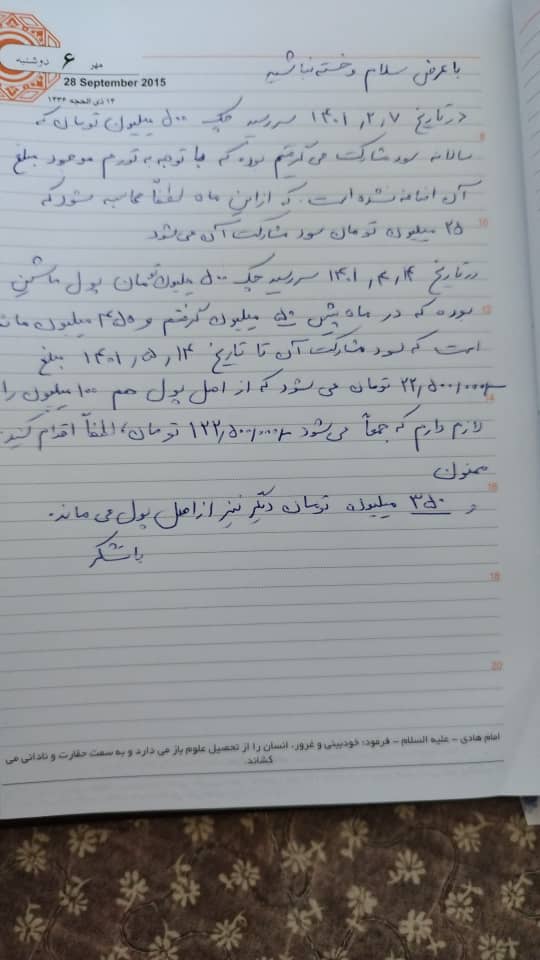 مهر ۶ دوشنبه
28 September 2015
۱۴ ذی الحجه ۱۴۳۶
با عرض سلام و خسته نباشید
در تاریخ ۱۴۰۱,۲,۷ سررسید چک ۵۰۰ میلیون تومان که
8
سالانه سود مشارکت می گرفتیم بوده که با توجه به تورم موجود مبلغ
آن اضافه نشده است. که از این ماه لطفاً محاسبه شود که
10
۲۵ میلیون تومان سود مشارکت آن می شود
در تاریخ ۱۴۰۱,۴,۱۴ سررسید چک ۵۰۰ میلیون تومان پول ماشین
12
بوده که در ماه پیش ۵۰ میلیون گرفتم و ۴۵۰ میلیون مانده
است که سود مشارکت آن تا تاریخ ۱۴۰۱,۵,۱۴ مبلغ
۲۲,۵۰۰,۰۰۰ تومان می شود که از اصل پول هم ۱۰۰ میلیون را
14
لازم دارم که جمعاً می شود ۱۲۲,۵۰۰,۰۰۰ تومان، لطفاً اقدام کنید.
ممنون
16
و ۳۵۰ میلیون تومان دیگر نیز از اصل پول می ماند.
با تشکر
18
20
امام هادی - علیه السلام - فرمود: خودبینی و غرور، انسان را از تحصیل علوم باز می دارد و به سمت حقارت و نادانی می
کشاند.